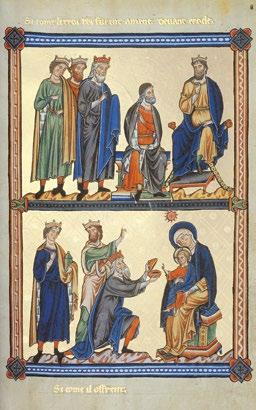 Si come li troi rei furent amene devant erode.
Si come il offrirent.